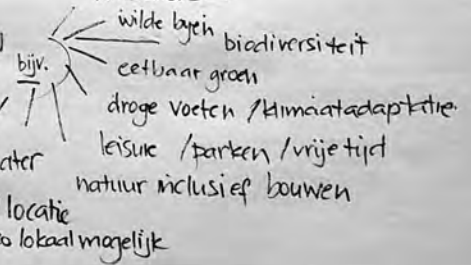 wilde byen
biodiversiteit
bijv.
eetbaar groen
droge voeten / klimaatadaptatie.
leisure / parken / vrije tijd
natuur inclusief bouwen
locatie
lokaal mogelijk